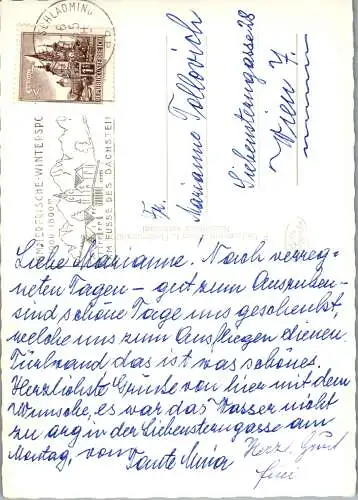 SCHLADMING
Fr.
Marianne Tollovich
Siebensterngasse 28
Wien 7.
SOMMERFRISCHE-WINTERSPORT
AM FUSSE DES DACHSTEIN
Liebe Marianne! Nach verreg-
neten Tagen - gut zum Ausruhen -
sind schöne Tage uns geschenkt,
welche uns zum Ausfliegen dienen.
Türlwand das ist was schönes.
Herzlichste Grüße von hier mit dem
Wunsche, es war das Wasser nicht
zu arg in der Siebensterngasse am
Montag, von
Tante Mina
Herz. Gruß